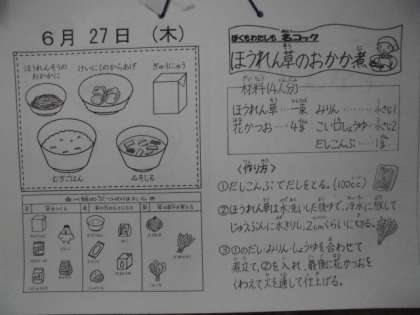 6月 27日 (木)
ほうれんそうの
おかかに
けいにくのからあげ
ぎゅうにゅう
むぎごはん
みそしる
ぼくもわたしも 名コック
ほうれん草のおかか煮
材料(4人分)
ほうれん草‥‥一束
みりん‥‥‥小さじ1
花かつお‥‥4g
こい口しょうゆ‥小さじ2
だしこんぶ‥‥1g
〈作り方〉
①だしこんぶでだしをとる。(100cc)
②ほうれん草は水洗いしたあとゆで、冷水に放して
じゅうぶんに水きりし、2cmくらいにきる。
③①のだし・みりん・しょうゆを合わせて
煮立て、②を入れ、最後に花かつおを
くわえて火を通して仕上げる。